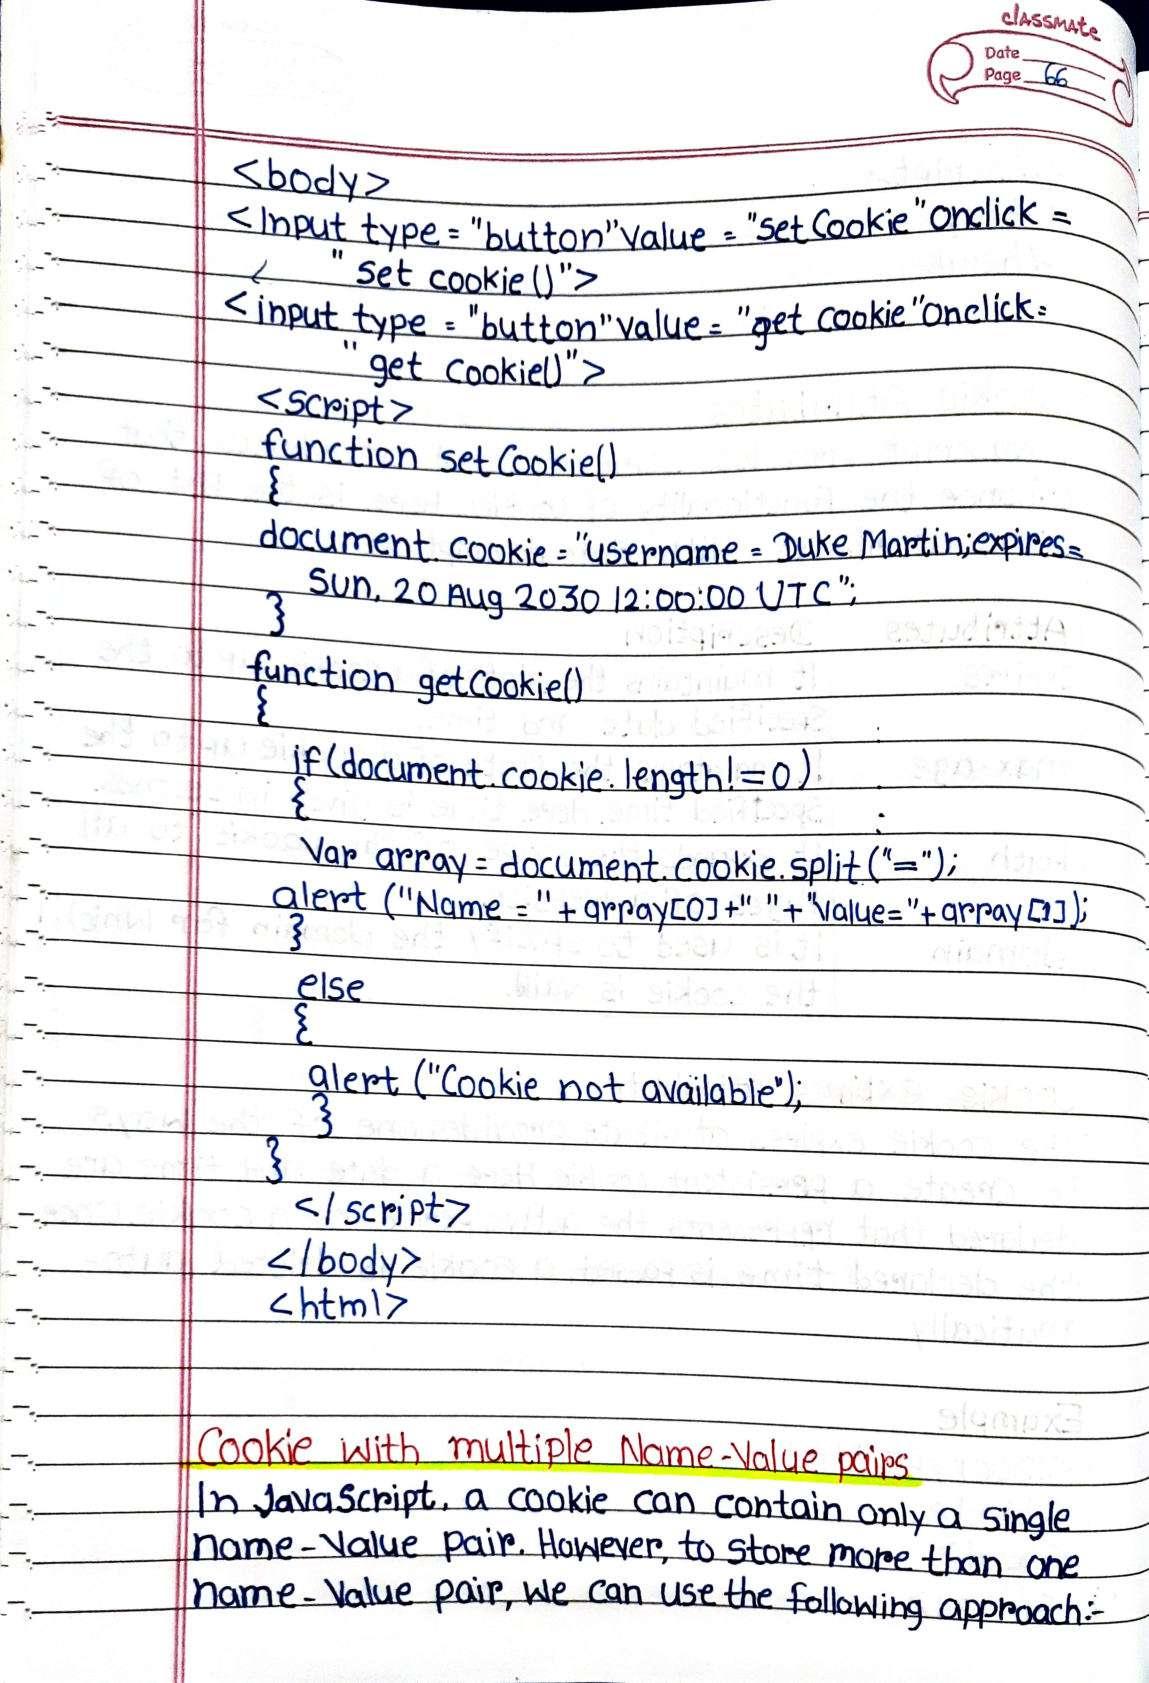 classmate
Date
Page 66
<body>
<Input type = "button" value = "set Cookie" onclick =
" set cookie()">
<input type = "button" value = "get cookie" onclick=
" get cookie()">
<script>
function set Cookie()
{
document. cookie = "username = Duke Martin; expires=
Sun, 20 Aug 2030 12:00:00 UTC";
}
function getCookie()
{
if(document.cookie.length!=0)
{
Var array = document.cookie.split("=");
alert ("Name =" + array[0]+" "+"Value="+array[1]);
}
else
{
alert ("Cookie not available");
}
}
</script>
</body>
<html>
Cookie with multiple Name-Value pairs
In JavaScript, a cookie can contain only a single
name-Value pair. However, to store more than one
name-Value pair, we can use the following approach:-